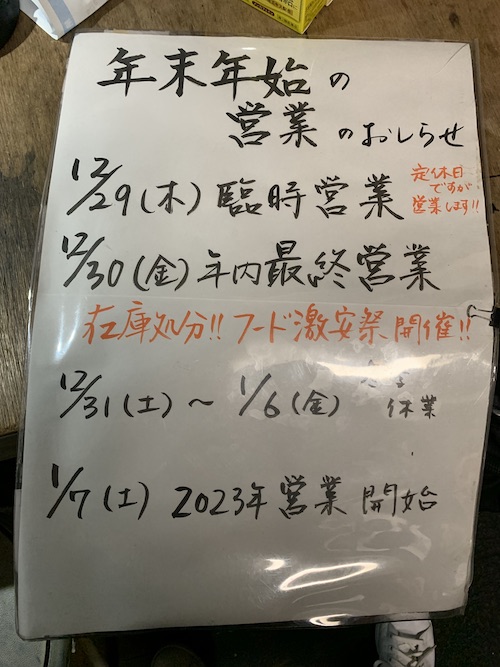 年末年始の
営業のおしらせ
12/29(木)臨時営業
定休日
ですが
営業します!!
12/30(金)年内最終営業
在庫処分!!フード激安祭開催!!
12/31(土)～1/6(金)
休業
1/7(土) 2023年営業開始